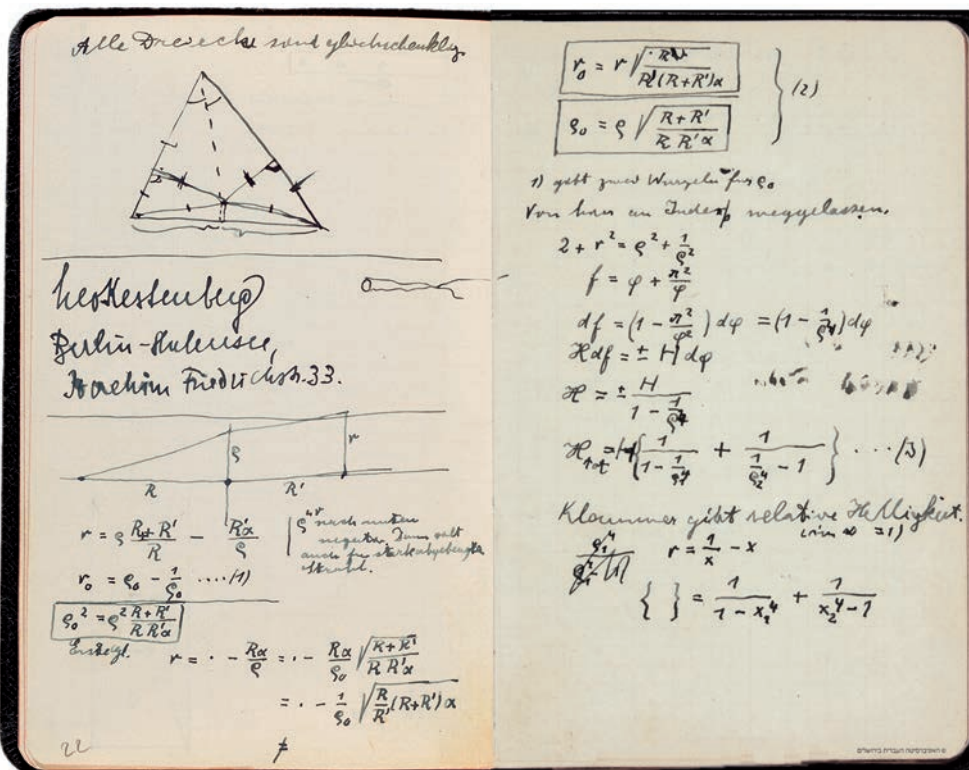 Alle Dreiecke sind gleichschenklig
Leo Kestenberg
Berlin-Halensee,
Joachim Friedrichstr. 33.
ρ r
R R'
r = ρ (R+R')/R − R'α/ρ
ρ nach unten negativ. Dann gilt
auch für stark abgebeugte
Strahl.
r₀ = ρ₀ − 1/ρ₀ ....(1)
ρ₀² = ρ² (R+R')/(R R'α)
r = · − Rα/ρ = · − Rα/ρ₀ √((R+R')/(R R'α))
= · − 1/ρ₀ √(R/R' (R+R')α)
22
r₀ = r √(R/(R'(R+R')α))
ρ₀ = ρ √((R+R')/(R R'α))
} (2)
1) gibt zwei Wurzeln für ρ₀
Von hier an Index weggelassen.
2 + r² = ρ² + 1/ρ²
f = φ + π²/φ
df = (1 − π²/φ²) dφ = (1 − 1/ρ⁴) dφ
H df = ± H dφ
H = ± H/(1 − 1/ρ⁴)
H_tot = H {1/(1 − 1/ρ₁⁴) + 1/(1/ρ₂⁴ − 1)} ....(3)
Klammer gibt relative Helligkeit.
(im ∞ = 1)
r = 1/x − x
{ } = 1/(1 − x₁⁴) + 1/(x₂⁴ − 1)
© האוניברסיטה העברית בירושלים